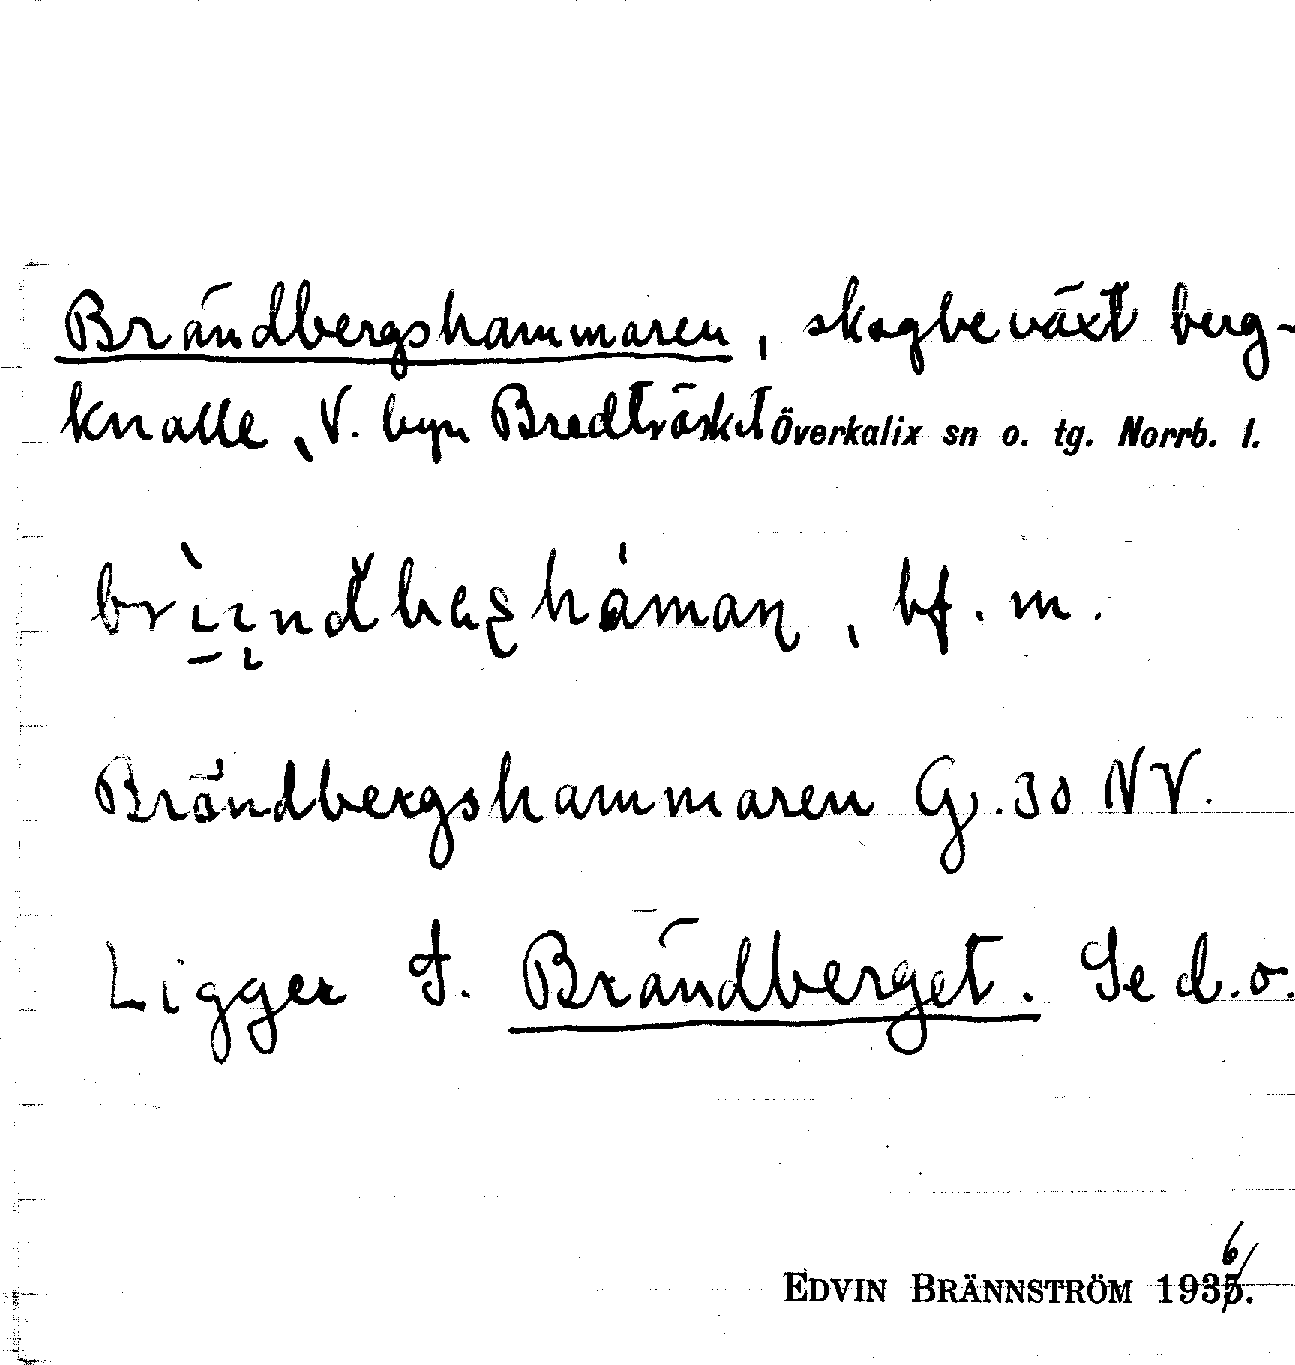 Brändbergshammaren, skogbeväxt berg-
knalle, V. byn Bredträsket Överkalix sn o. tg. Norrb. l.
, bf. m.
Brändbergshammaren G. 30 NV.
Ligger S. Brändberget. Se d.o.
EDVIN BRÄNNSTRÖM 1936.